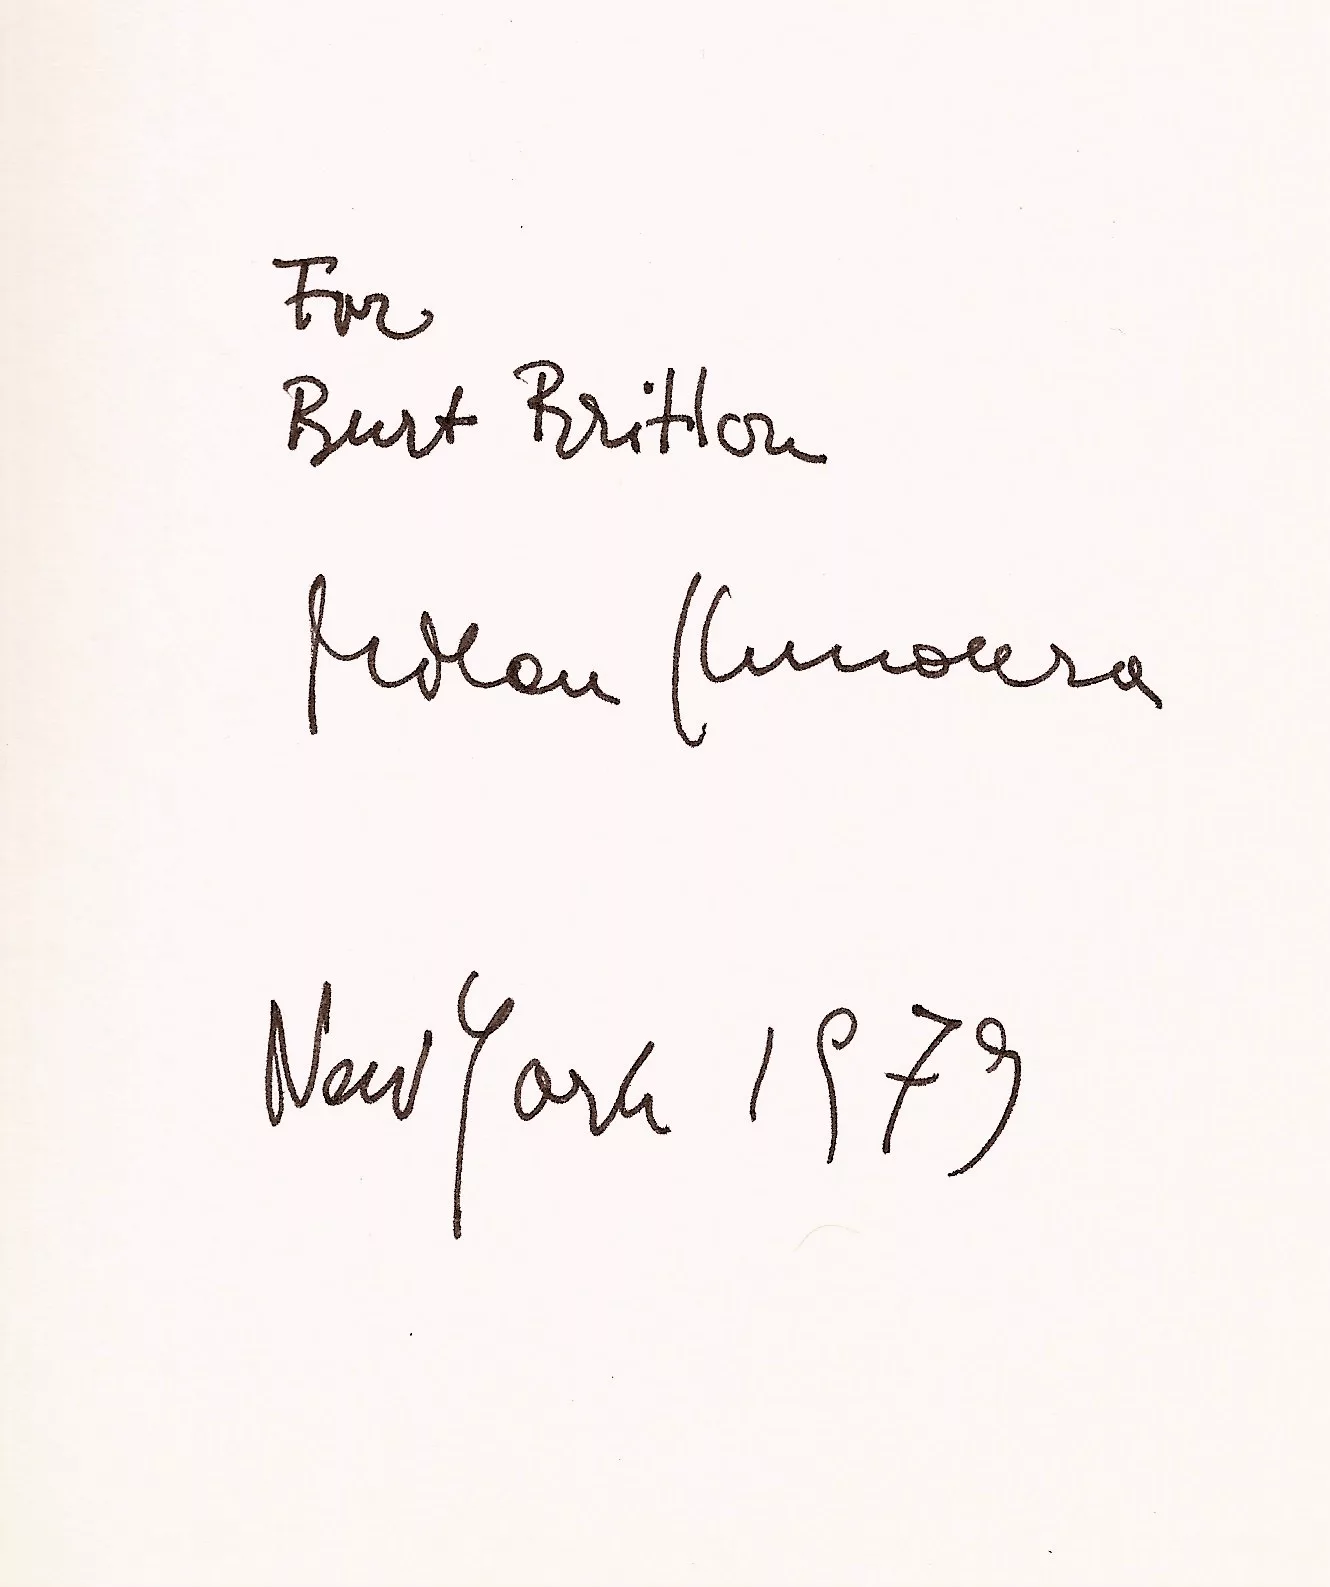 For
Burt Britton
Milan Kundera
New York 1979